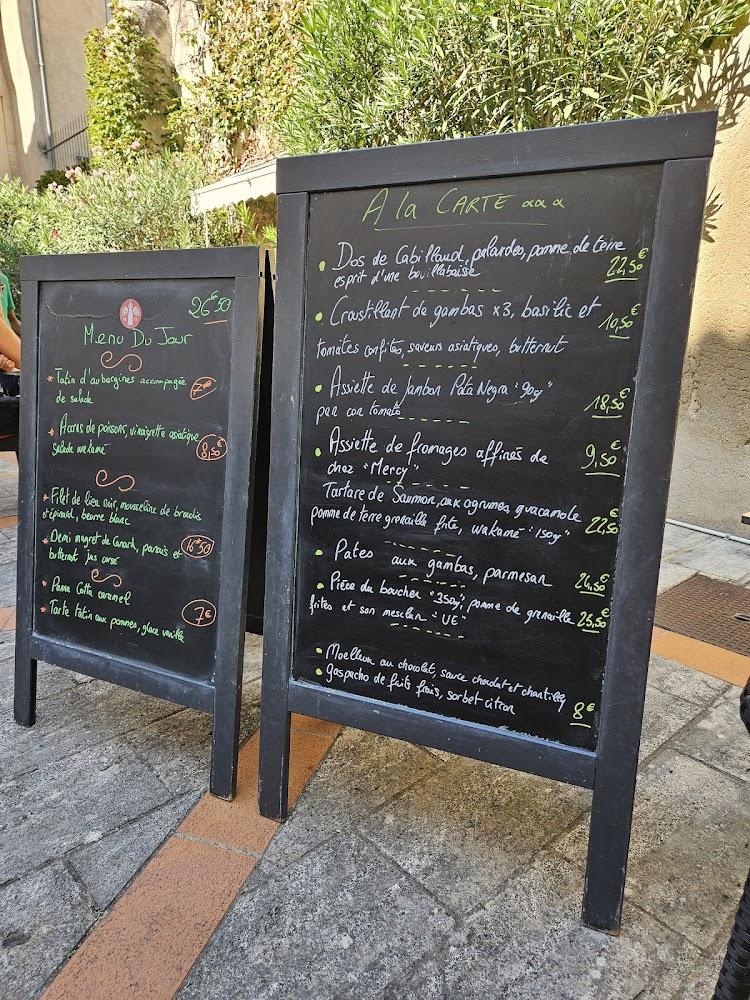 26€50
Menu Du Jour
* Tatin d'aubergines accompagnée
de salade
7€
* Accras de poissons, vinaigrette asiatique
Salade wakamé
8,50€
* Filet de lieu noir, mousseline de brocolis
et épinard, beurre blanc
* Demi magret de canard, panais et
butternut "jus corsé"
16€50
* Panna Cotta caramel
* Tarte tatin aux pommes, glace vanille
7€
A la CARTE
• Dos de Cabillaud, palourdes, pomme de terre
esprit d'une bouillabaisse
22,50€
• Croustillant de gambas x3, basilic et
tomates confites, saveurs asiatiques, butternut
10,50€
• Assiette de Jambon Pata Negra "90g"
pan con tomato
18,50€
• Assiette de fromages affinés de
chez "Mercy"
9,50€
Tartare de Saumon, aux agrumes, guacamole
pomme de terre grenaille frite, wakamé "150g"
22,50€
• Pates aux gambas, parmesan
24,50€
• Pièce du boucher "350g", pomme de grenaille
frites et son mesclun "UE"
25,50€
• Moelleux au chocolat, sauce chocolat et chantilly
• Gaspacho de fruits frais, sorbet citron
8€